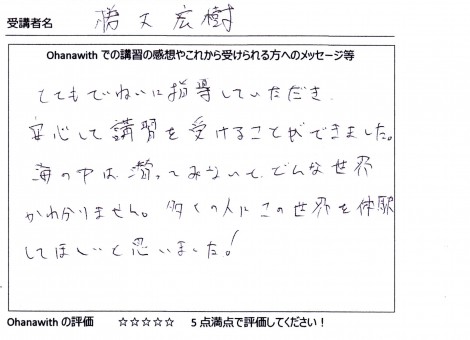 受講者名 勝又 広樹
Ohanawith での講習の感想やこれから受けられる方へのメッセージ等
とてもていねいに指導していただき、
安心して講習を受けることができました。
海の中は、潜ってみないと、どんな世界
かわかりません。多くの人にこの世界を体験
してほしいと思いました!
Ohanawith の評価 ☆☆☆☆☆ 5点満点で評価してください!